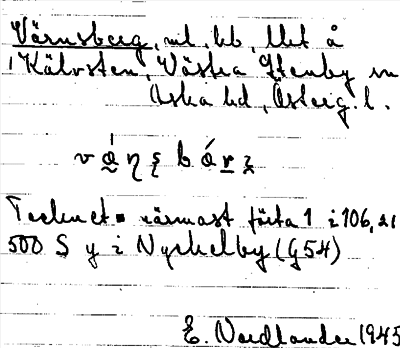 Värnsberg, ml, bb, lht å
Kälvsten, Västra Stenby sn
Aska hd, Österg. l.
Tecknet närmast första 1 i 106, 21
500 S y i Nyckelby (G54)
E. Nordlander 1945